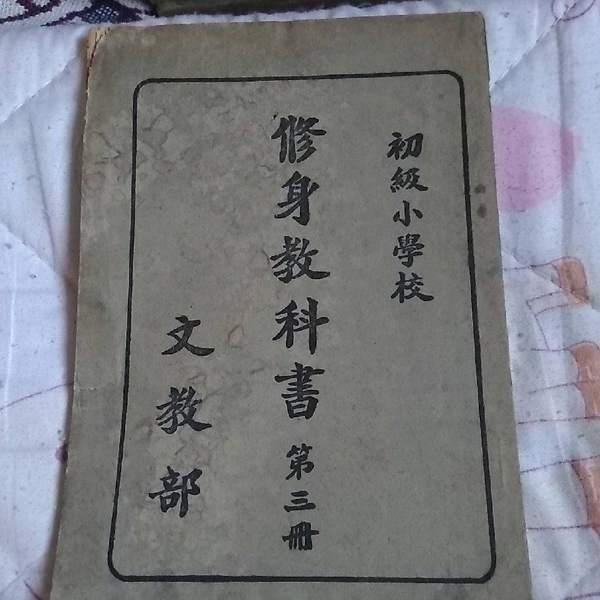 初級小學校
修身教科書 第三冊
文教部